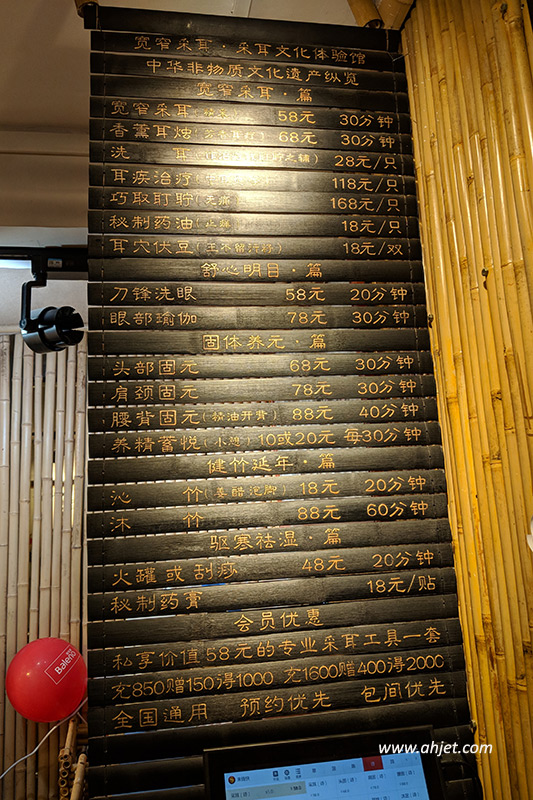 宽窄采耳·采耳文化体验馆
中华非物质文化遗产纵览
宽窄采耳·篇
宽窄采耳 58元 30分钟
香薰耳烛 68元 30分钟
洗 耳 28元/只
耳疾治疗 118元/只
巧取耵聍(无痛) 168元/只
秘制药油 18元/只
耳穴伏豆(王不留行籽) 18元/双
舒心明目·篇
刀锋洗眼 58元 20分钟
眼部瑜伽 78元 30分钟
固体养元·篇
头部固元 68元 30分钟
肩颈固元 78元 30分钟
腰背固元(精油开背) 88元 40分钟
养精蓄悦(小憩) 10或20元 每30分钟
健价延年·篇
沁 价(姜醋泡脚) 18元 20分钟
沐 价 88元 60分钟
驱寒祛湿·篇
火罐或刮痧 48元 20分钟
秘制药膏 18元/贴
会员优惠
私享价值58元的专业采耳工具一套
充850赠150得1000 充1600赠400得2000
全国通用 预约优先 包间优先
Baleno
www.ahjet.com